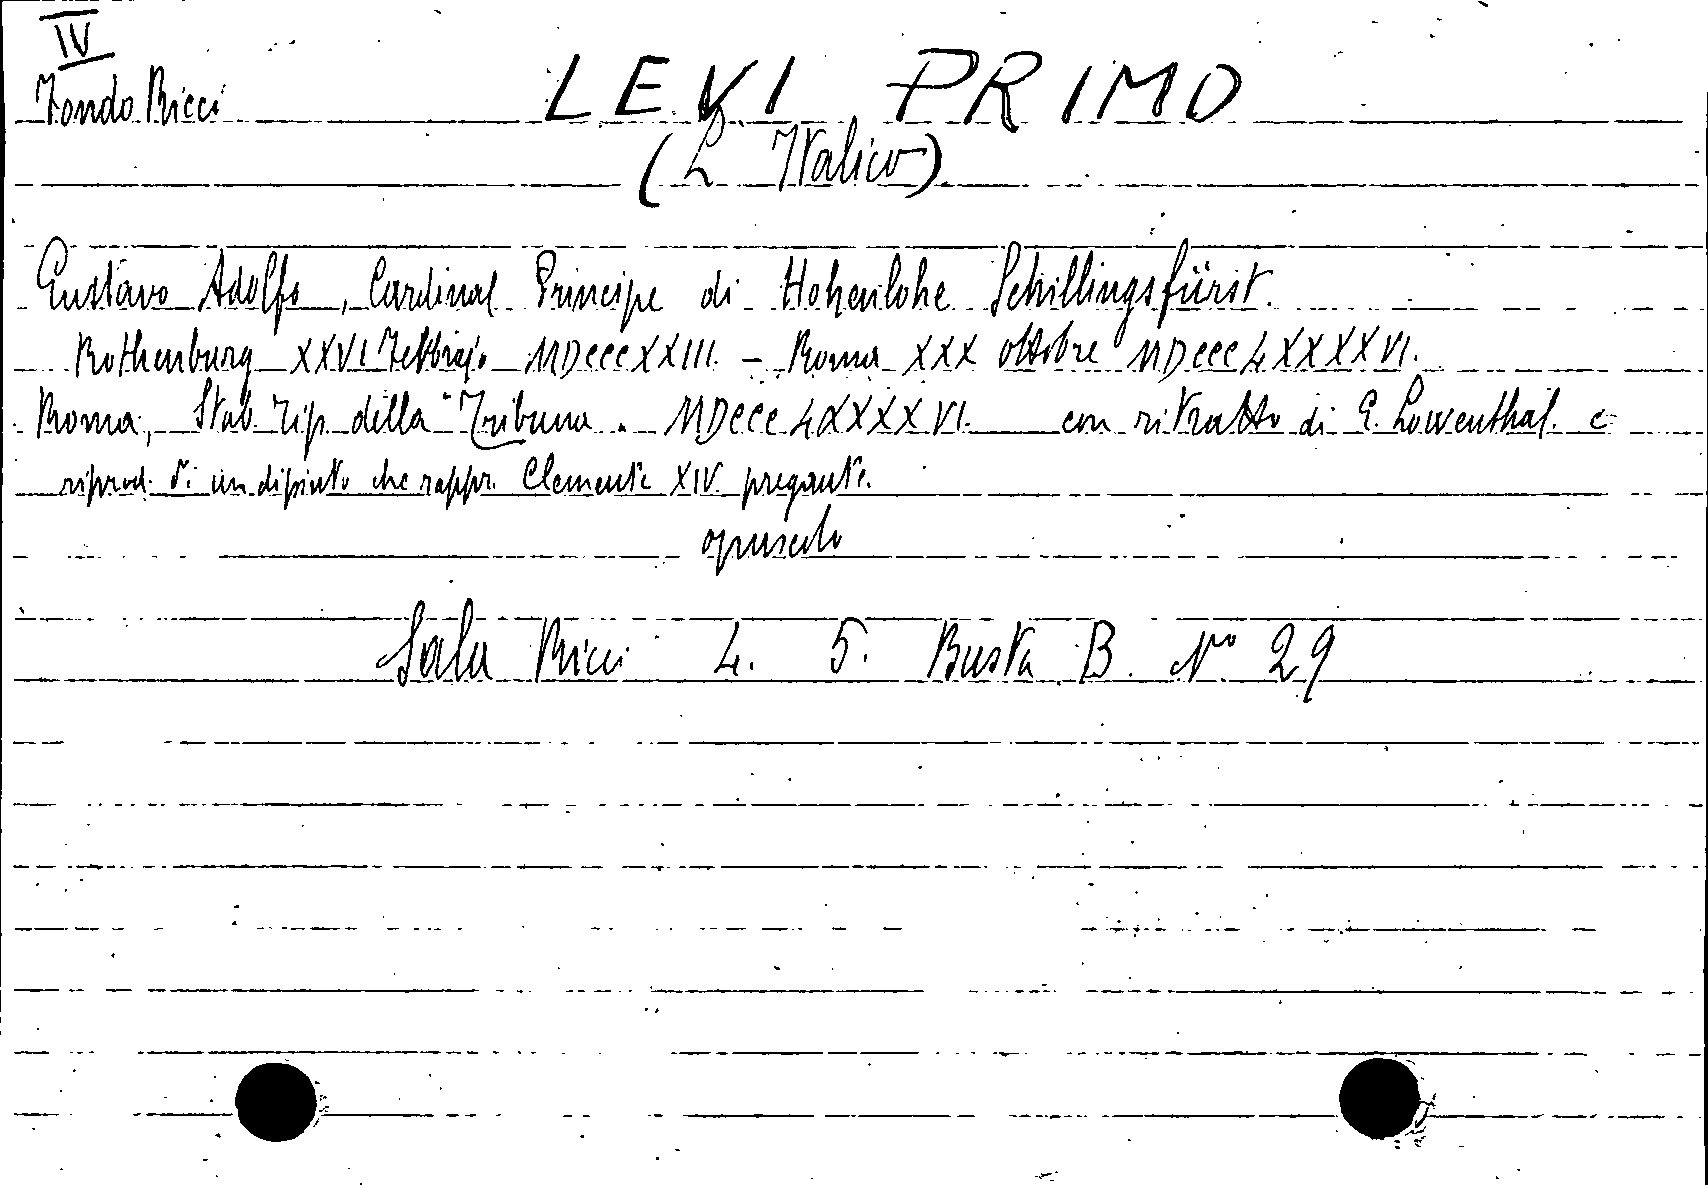 IV
Fondo Ricci
LEVI PRIMO
(L. Italico)
Gustavo Adolfo, Cardinal Principe di Hohenlohe Schillingsfürst.
Rothenburg XXVI Febbrajo MDCCCXXIII. - Roma XXX ottobre MDCCCLXXXXVI.
Roma, Stab. Tip. della "Tribuna". MDCCCLXXXXVI. con ritratto di E. Lowenthal. e
riprod. di un dipinto che rappr. Clemente XIV pregante.
opuscolo
Sala Ricci 4. 5. Busta B. N° 29